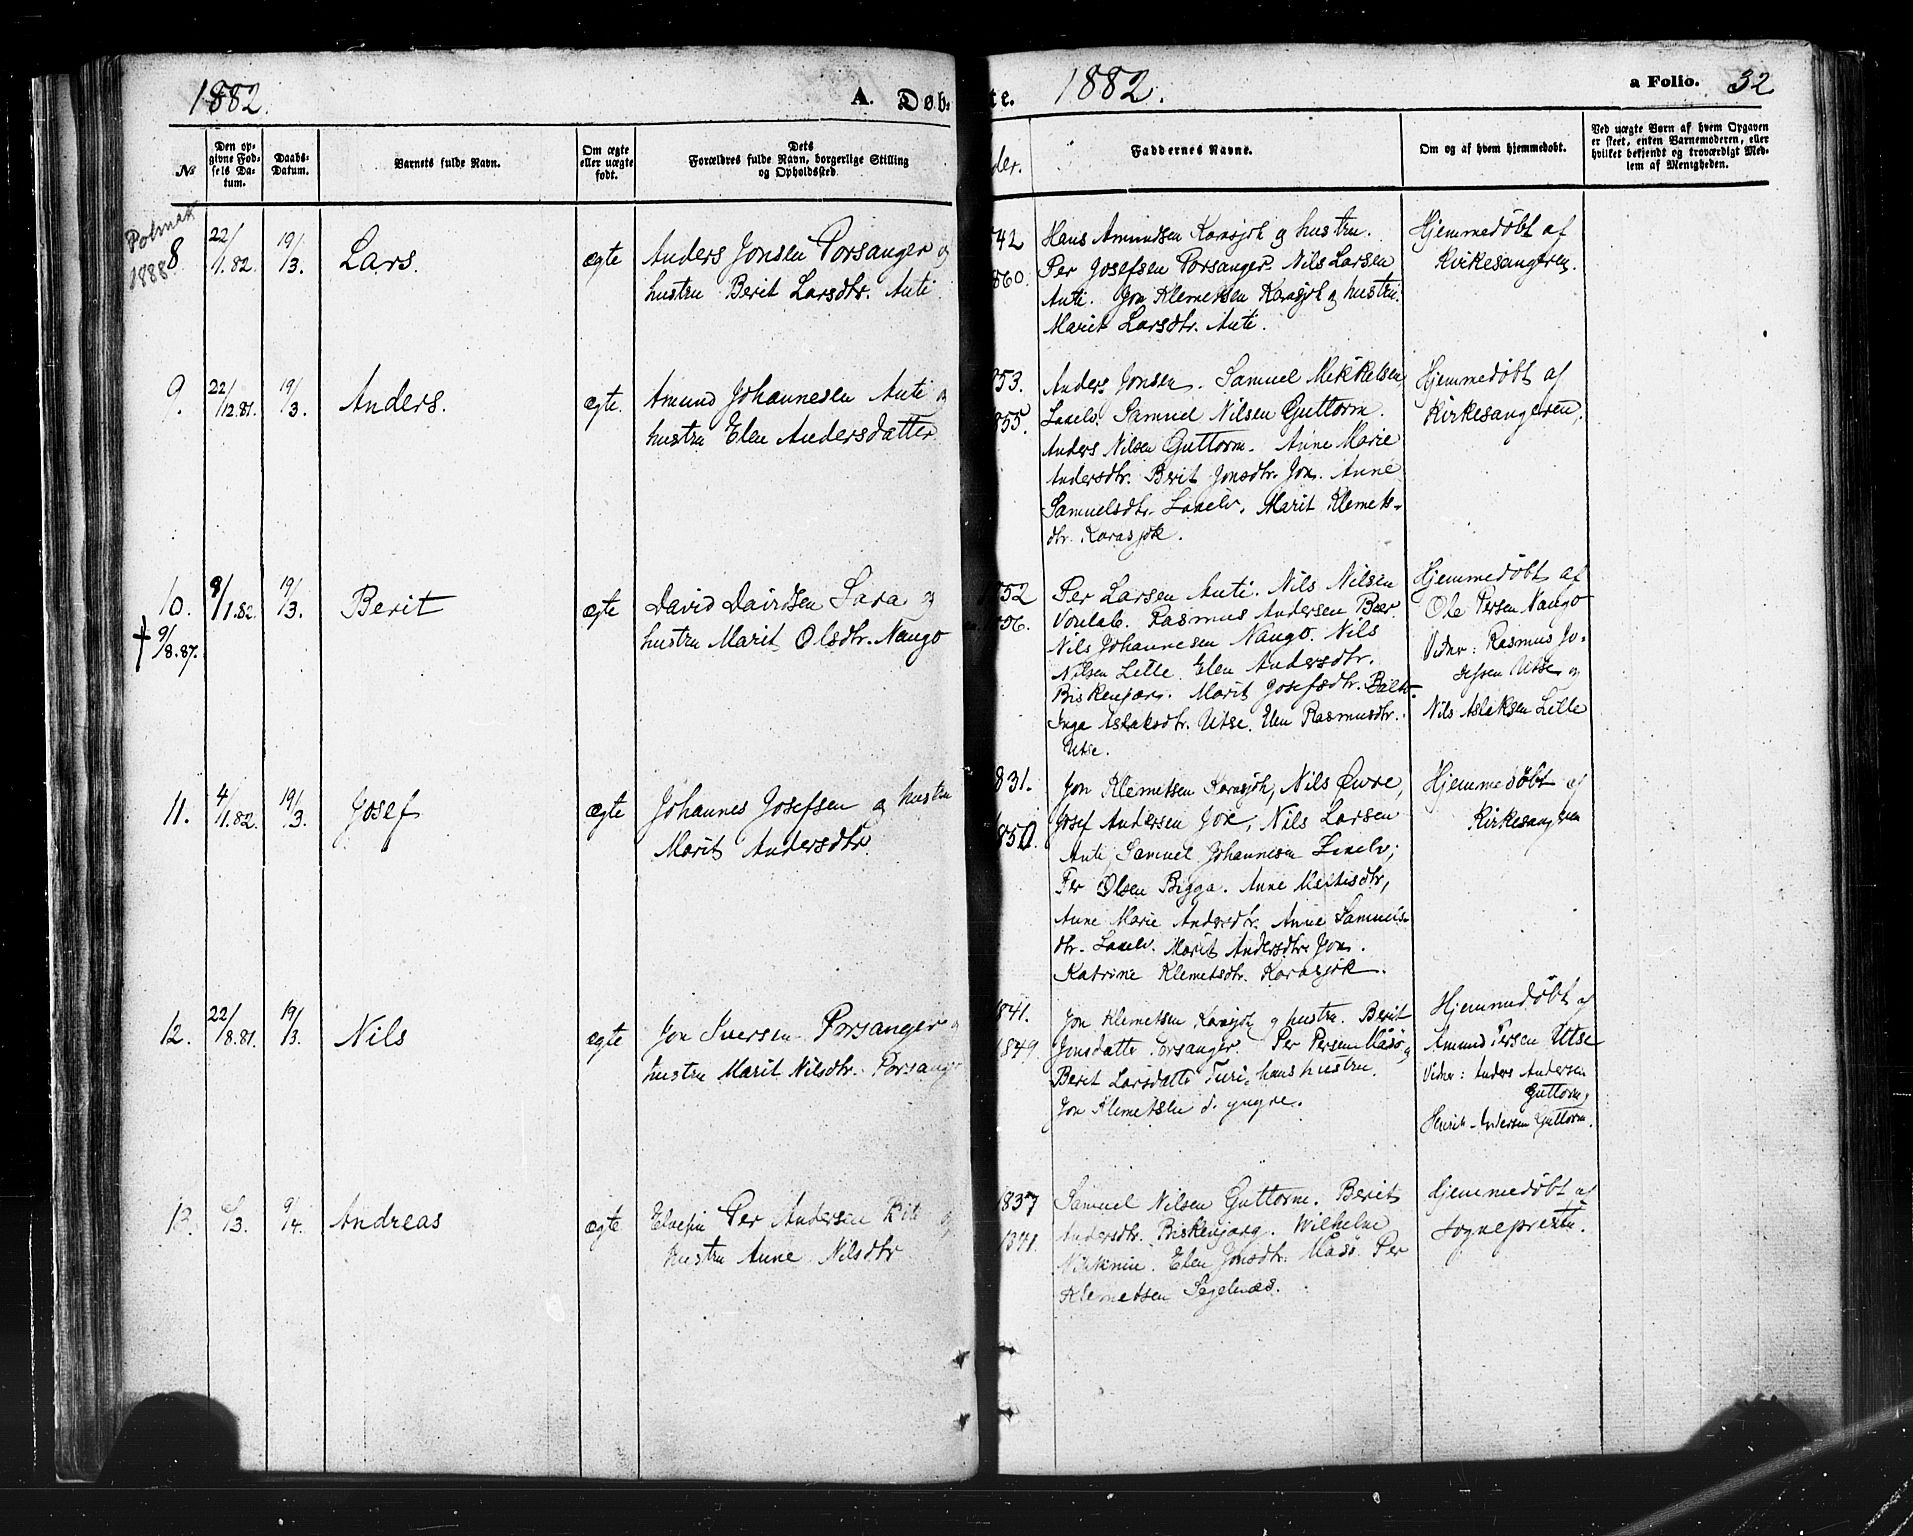 1882.
A. Døb-
№
Den op-
givne Fød-
sels Da-
tum.
Daabs-
Datum.
Barnets fulde Navn.
Om ægte
eller uægte
født.
Dets
Forældres fulde Navn, borgerlige Stilling
og Opholdssted.
Polmak
1888
8
22/
/1.82.
19/
/3.
Lars.
ægte
Anders Jonsen Porsanger og
hustru Berit Larsdtr. Anti.
9.
22/
/12.81.
19/
/3.
Anders.
ægte.
Amund Johannesen Anti og
hustru Elen Andersdatter
10.
9/
/1.82.
19/
/3.
Berit
ægte
David Davidsen Sara og
hustru Marit Olsdtr. Nango
† 9/
/8.87.
11.
4/
/1.82.
19/
/3.
Josef
ægte
Johannes Josefsen og hustru
Marit Andersdtr.
12.
22/
/8.81.
19/
/3.
Nils
ægte
Jon Iversen Porsanger og
hustru Marit Nilsdtr. Porsang
13.
/3.
9/
/4.
Andreas
ægte
Per Andersen
hustru Anne Nilsdtr
te.
1882.
a Folio. 32
der.
Faddernes Navne.
Om og af hvem hjemmedøbt.
Ved uægte Børn af hvem Opgaven
er skeet, enten Barnemoderen, eller
hvilket bekjendt og troværdigt Med-
lem af Menigheden.
842
860.
Hans Amundsen Karasjok og hustru.
Per Josefsen Porsanger. Nils Larsen
Anti. Jon Klemetsen Karasjok og hustru
Marit Larsdtr. Anti.
Hjemmedøbt af
Kirkesangeren.
853.
855.
Anders Jonsen. Samuel Mikkelsen
Laxelv. Samuel Nilsen Guttorm.
Anders Nilsen Guttorm. Anne Marie
Andersdtr. Berit Jonsdtr. Jox. Anne
Samuelsdtr. Laxelv. Marit Klemets-
dtr. Karasjok.
Hjemmedøbt af
Kirkesangeren.
852
56.
Per Larsen Anti. Nils Nilsen
Vonlab. Rasmus Andersen Bær.
Nils Johannesen Nango. Nils
Nilsen Lille. Elen Andersdtr.
Biskenjarg. Marit Josefsdtr. Balto.
Inga Aslaksdtr. Utse. Elen Rasmusdtr.
Utse.
Hjemmedøbt af
Ole Persen Nango
Vidner: Rasmus Jo-
sefsen Utse og
Nils Aslaksen Lille
831.
1850.
Jon Klemetsen Karasjok, Nils Øvre,
Josef Andersen Jox, Nils Larsen
Anti, Samuel Johannesen Laxelv;
Per Olsen Bigga. Anne
Anne Marie Andersdtr. Anne Samuels-
dtr. Laxelv. Marit Andersdtr. Jox.
Katrine Klemetsdtr. Karasjok.
Hjemmedøbt af
Kirkesangeren
1841.
1849.
Jon Klemetsen Karasjok og hustru. Berit
Jonsdatter Porsanger. Per Persen Maasø og
Berit Larsdatter Turi, hans hustru.
Jon Klemetsen d. yngre.
Hjemmedøbt af
Amund Persen Utse
Vidner: Anders Andersen
Guttorm,
Henrik Andersen Guttorm.
1837
1841.
Samuel Nilsen Guttorm. Berit
Andersdtr. Biskenjarg. Wilhelm
Elen Jonsdtr. Maasø. Per
Klemetsen Segelnæs.
Hjemmedøbt af
Sognepresten.